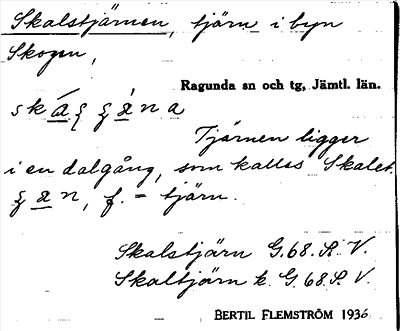 Skalstjärnen, tjärn i byn
Skogen,
Ragunda sn och tg, Jämtl. län.
Tjärnen ligger
i en dalgång, som kallas Skalet.
f. = tjärn.
Skalstjärn G.68. S. V.
Skaltjärn k. G. 68. S. V.
BERTIL FLEMSTRÖM 1936